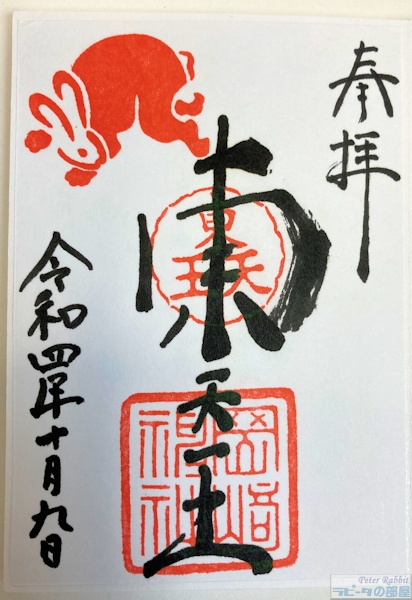 奉拝
東天王
東天王
岡崎神社
令和四年十月九日
Peter Rabbit
ラピータの部屋